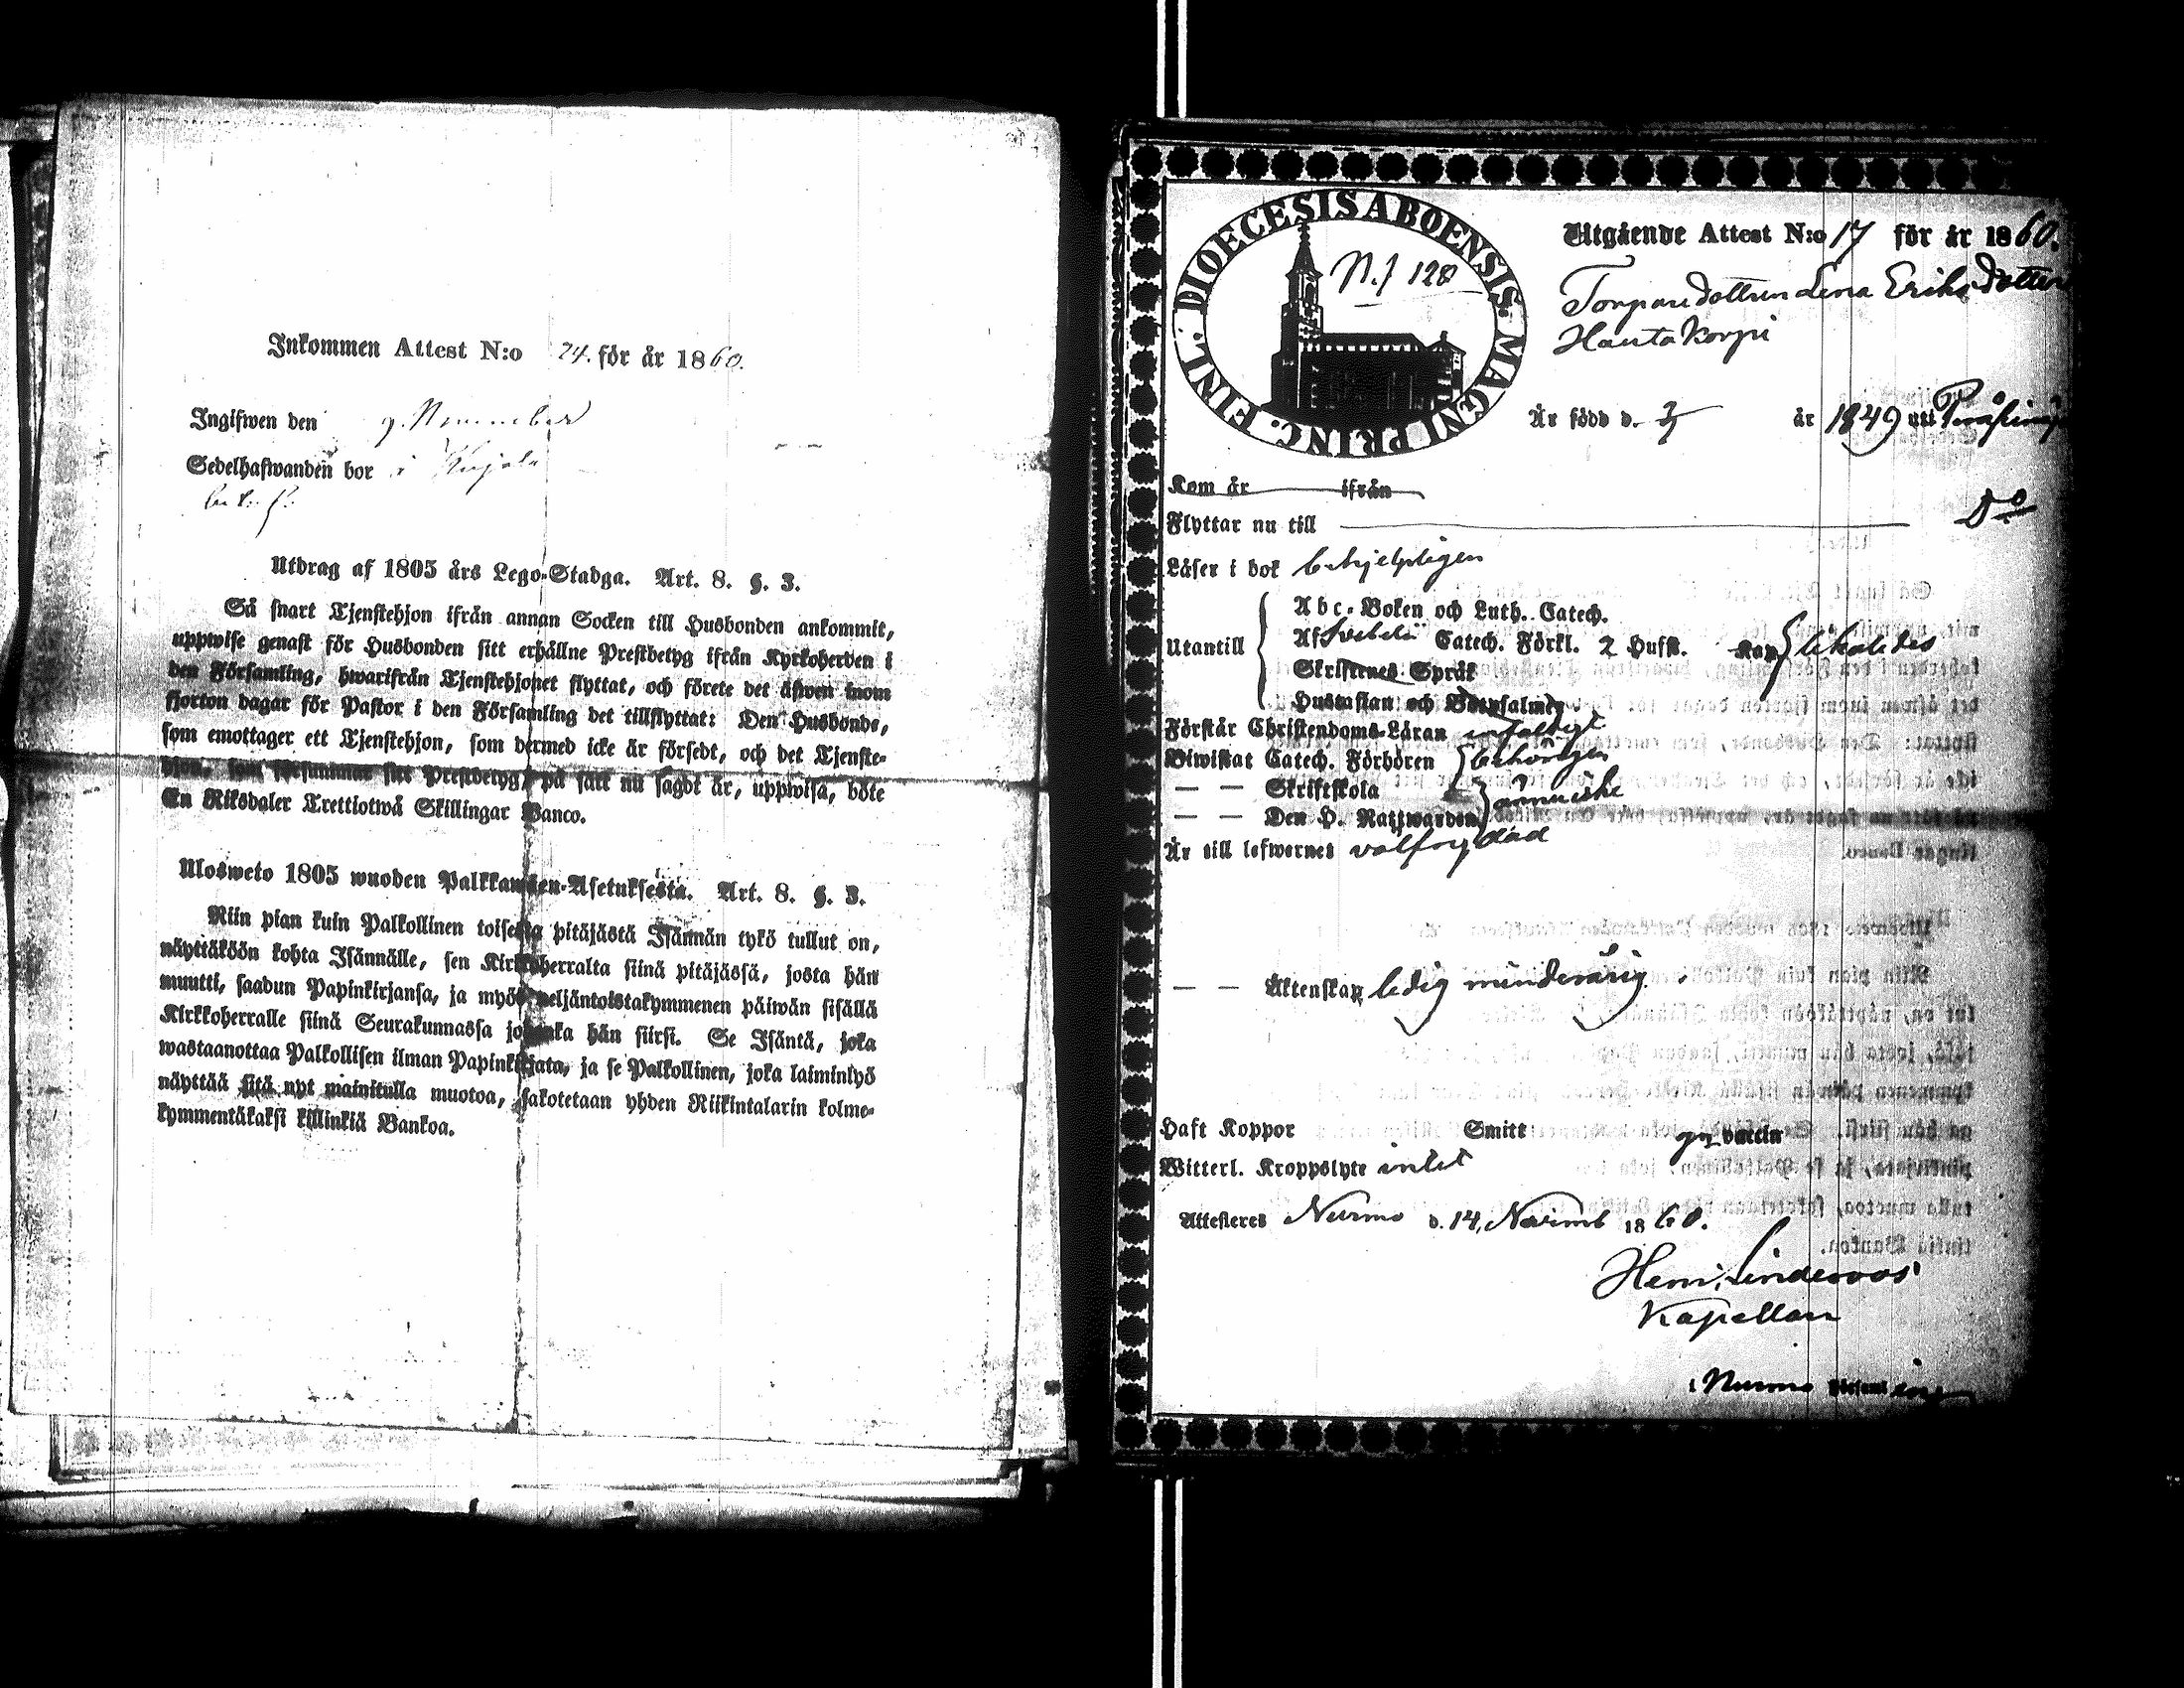 Inkommen Attest N:o 74. för år 1860.
Ingifwen den
Sedelhafwanden bor i
Utdrag af 1805 års Lego-Stadga. Art. 8. §. 3.
Så snart Tjenstehjon ifrån annan Socken till Husbonden ankommit,
uppwise genast för Husbonden sitt erhållne Prestbetyg ifrån Kyrkoherden i
den Församling, hwarifrån Tjenstehjonet flyttat, och förete det äfwen inom
fjorton dagar för Pastor i den Församling det tillflyttat: Den Husbonde,
som emottager ett Tjenstehjon, som dermed icke är försedt, och det Tjenste-
hjon, som försummar sitt Prestbetyg, på sätt nu sagdt är, uppwisa, böte
En Riksdaler Trettiotwå Skillingar Banco.
Ulosweto 1805 wuoden Palkkawäen-Asetuksesta. Art. 8. §. 3.
Niin pian kuin Palkollinen toisesta pitäjästä Isännän tykö tullut on,
näyttäköön kohta Isännälle, sen Kirkkoherralta siinä pitäjässä, josta hän
muutti, saadun Papinkirjansa, ja myös neljäntoistakymmenen päiwän sisällä
Kirkkoherralle siinä Seurakunnassa johonka hän siirsi. Se Isäntä, joka
wastaanottaa Palkollisen ilman Papinkirjata, ja se Palkollinen, joka laiminlyö
näyttää sitä nyt mainitulla muotoa, sakotetaan yhden Riikintalarin kolme-
kymmentäkaksi killinkiä Bankoa.
DIOECESIS ABOENSIS. MAGNI PRINC. FINL.
N.f 128
Utgående Attest N:o 17 för år 1860.
Torparedottren Lena Eriksdotter
Hautakorpi
Är född d. 3/ år 1849 uti
Kom år ifrån
Flyttar nu till Do
Läser i bok behjelpligen
Abc-Boken och Luth. Catech.
Utantill Af Svebelii Catech. Förkl. 2 Hufst. Kap
Skriftenes Språk
Hustaflan och Botpsalmer
Förstår Christendoms-Läran enfaldigt
Biwistat Catech. Förhören behörigen
— — Skriftskola
— — Den H. Nattwarden
Är till lefwernet välfrejdad
— — Äktenskap ledig minderårig.
Haft Koppor Smitt vaccin
Witterl. Kroppslyte intet
Attesteres Nurmo d. 14. Novemb 1860.
Henr. Linderoos
Kapellan
i Nurmo Församl